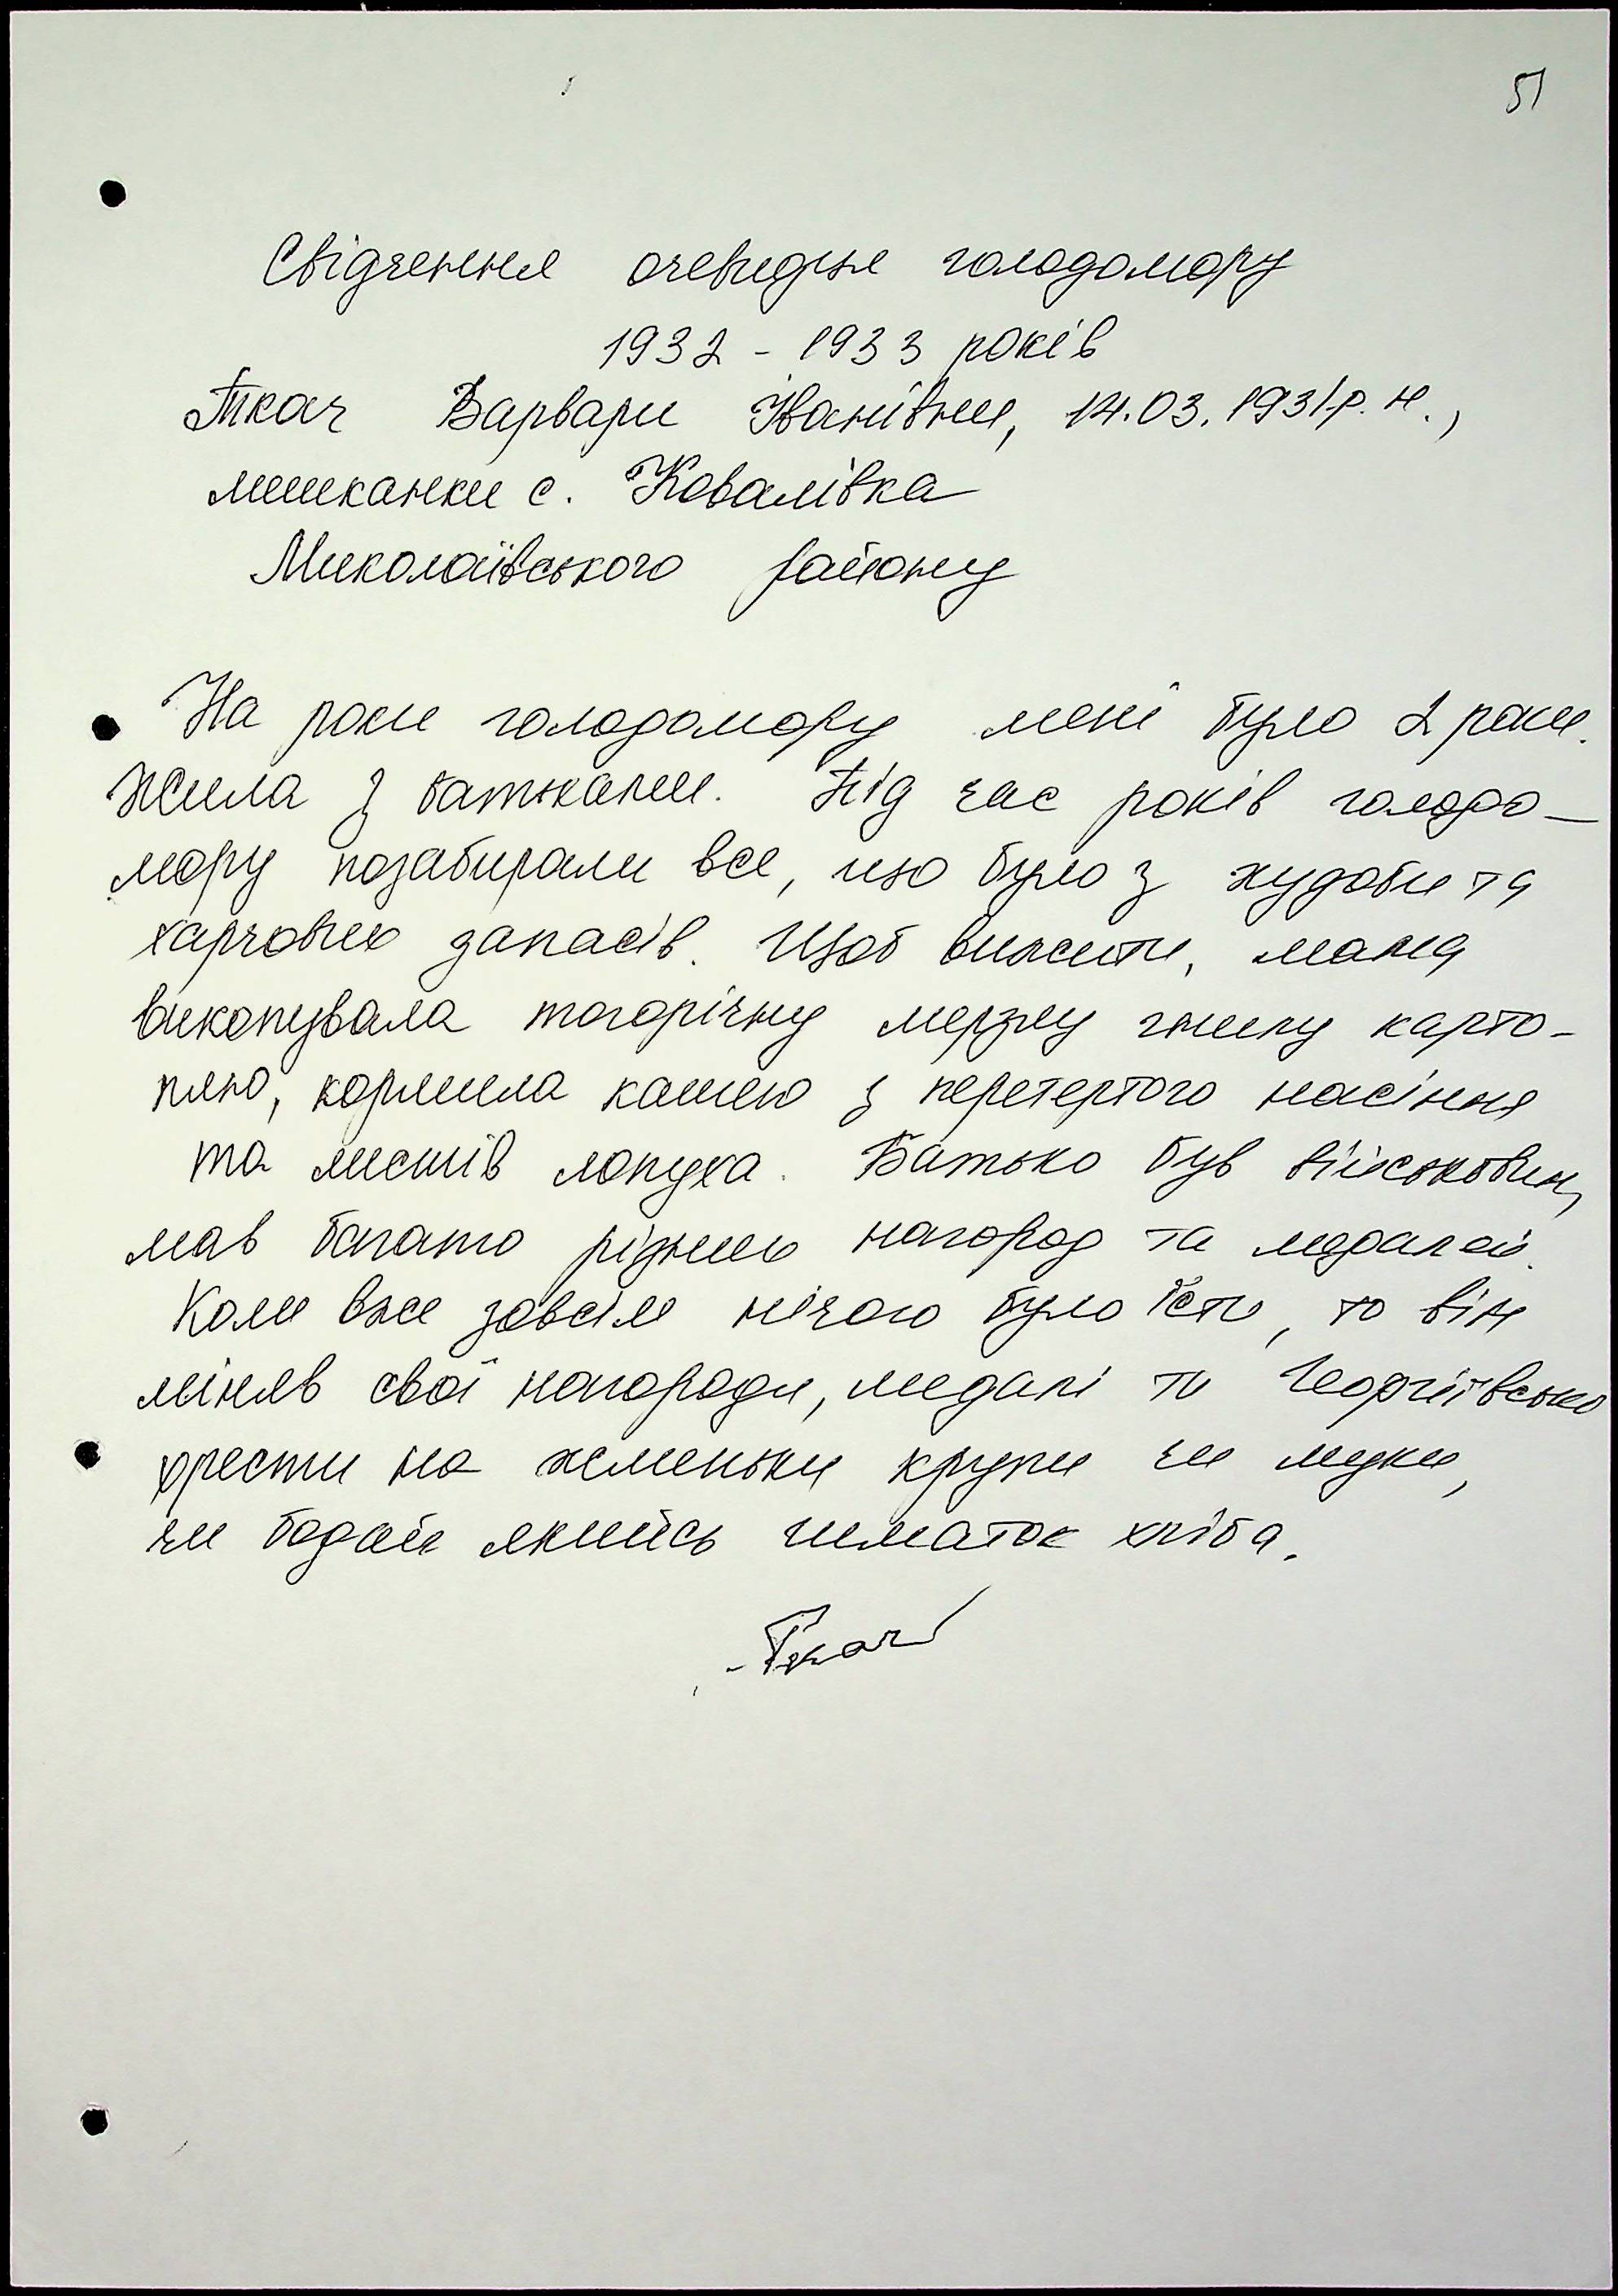 51
Свідчення очевидця голодомору
1932 - 1933 років
Ткач Варвари Іванівни, 14.03.1931 р. н.,
мешканки с. Ковалівка
Миколаївського району
На роки голодомору мені було 2 роки.
Жила з батьками. Під час років голодо-
мору позабирали все, що було з худоби та
харчових запасів. Щоб вижити, мама
викопувала тогорічну мерзлу гнилу карто-
плю, кормила кашею з перетертого насіння
та листків лопуха. Батько був військовим,
мав багато різних нагород та медалей.
Коли вже зовсім нічого було їсти, то він
міняв свої нагороди, медалі та Георгіївські
хрести на жменьки крупи чи муки,
чи бодай якийсь шматок хліба.
Ткач